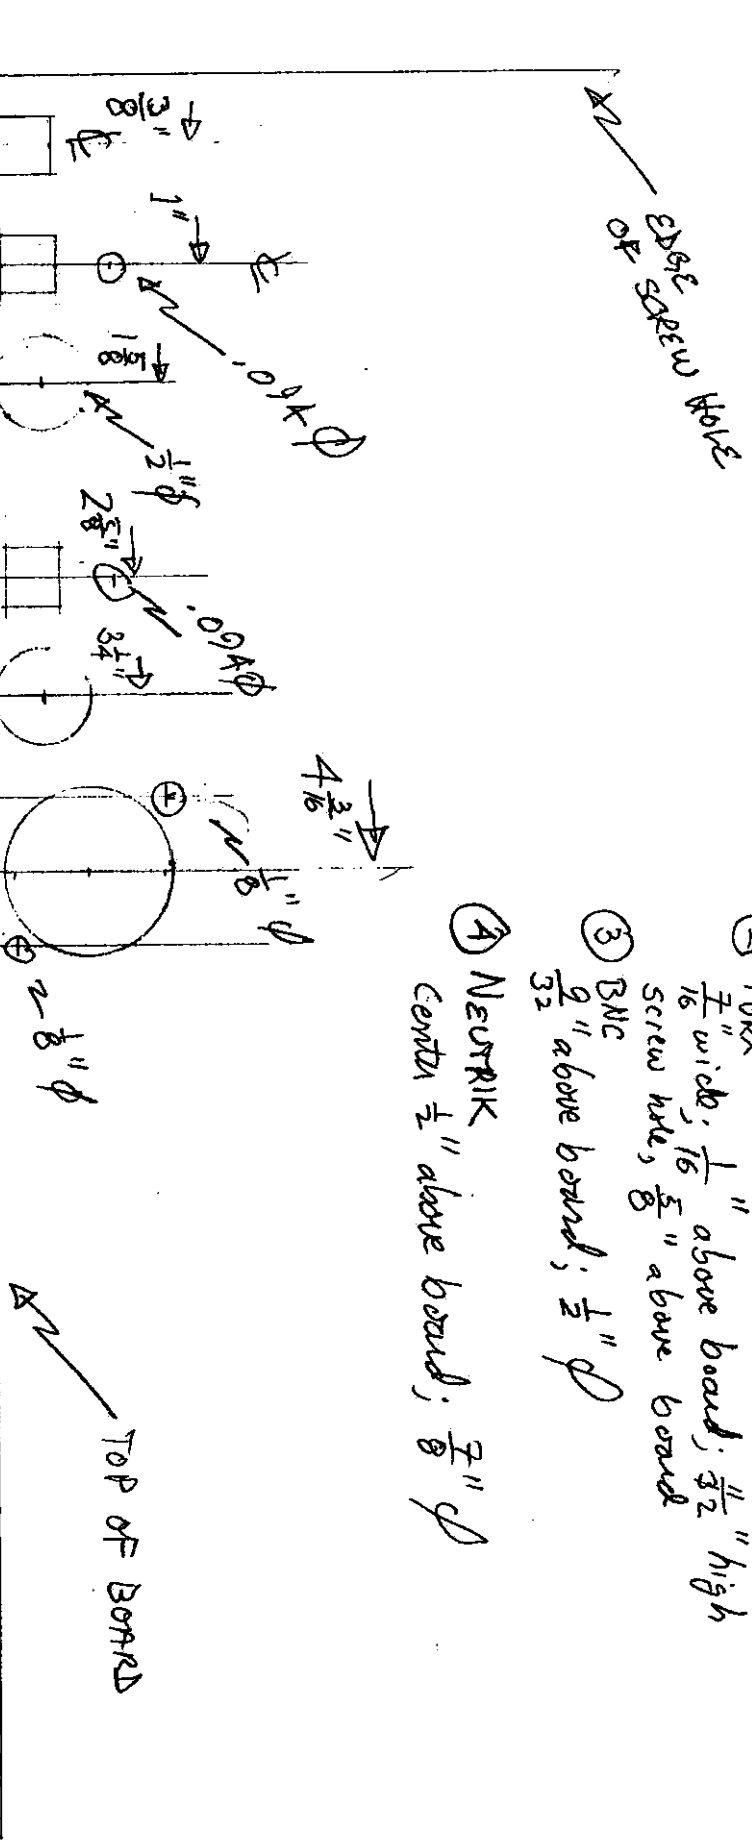 EDGE
OF SCREW HOLE
3/8"
℄
1"
℄
1 5/8
1/2" φ
2 5/8"
3 1/4"
4 3/16"
1/8" φ
1/8" φ
7/16" wide; 1/16" above board; 11/32" high
screw hole, 5/8" above board
③ BNC
9/32" above board; 1/2" φ
④ NEUTRIK
Center 1/2" above board; 7/8" φ
TOP OF BOARD